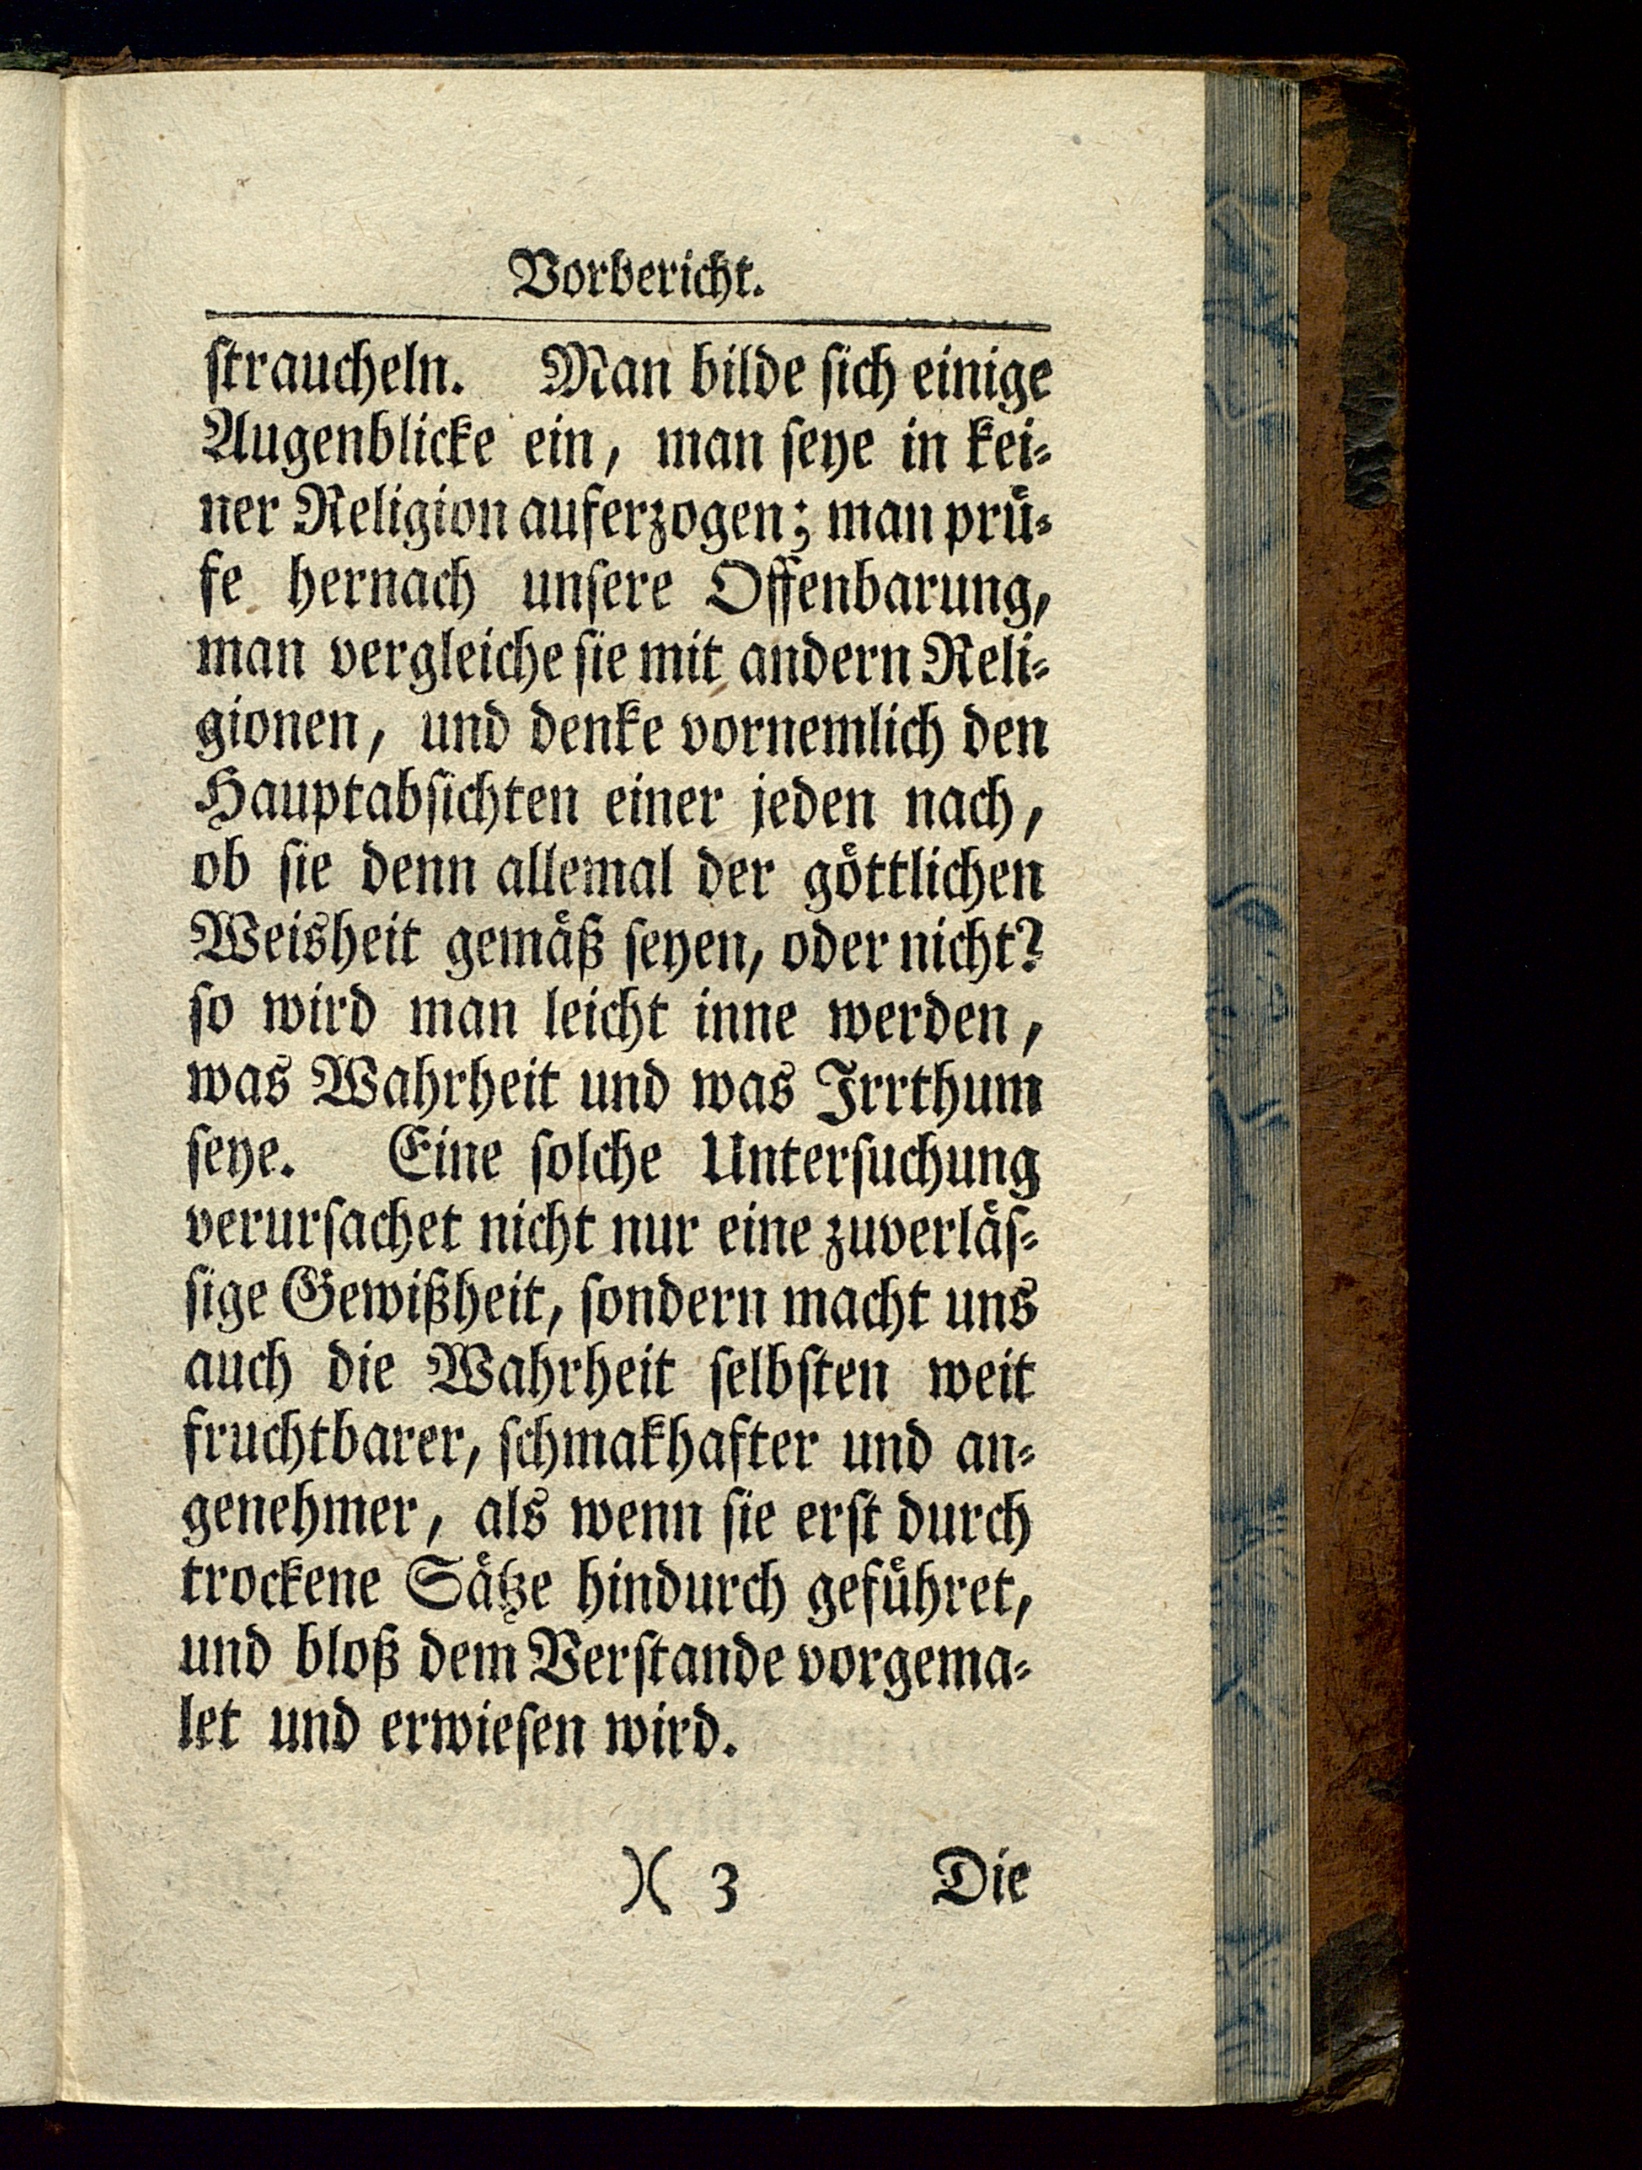 Vorbericht.
ſtraucheln. Man bilde ſich einige
Augenblicke ein, man ſeye in kei⸗
ner Religion auferzogen; man pruͤ⸗
fe hernach unſere Offenbarung,
man vergleiche ſie mit andern Reli⸗
gionen, und denke vornemlich den
Hauptabſichten einer jeden nach,
ob ſie denn allemal der goͤttlichen
Weisheit gemaͤß ſeyen, oder nicht?
ſo wird man leicht inne werden,
was Wahrheit und was Irrthum
ſeye. Eine ſolche Unterſuchung
verurſachet nicht nur eine zuverlaͤſ⸗
ſige Gewißheit, ſondern macht uns
auch die Wahrheit ſelbſten weit
fruchtbarer, ſchmakhafter und an⸗
genehmer, als wenn ſie erſt durch
trockene Saͤtze hindurch gefuͤhret,
und bloß dem Verſtande vorgema⸗
let und erwieſen wird.
)( 3 Die